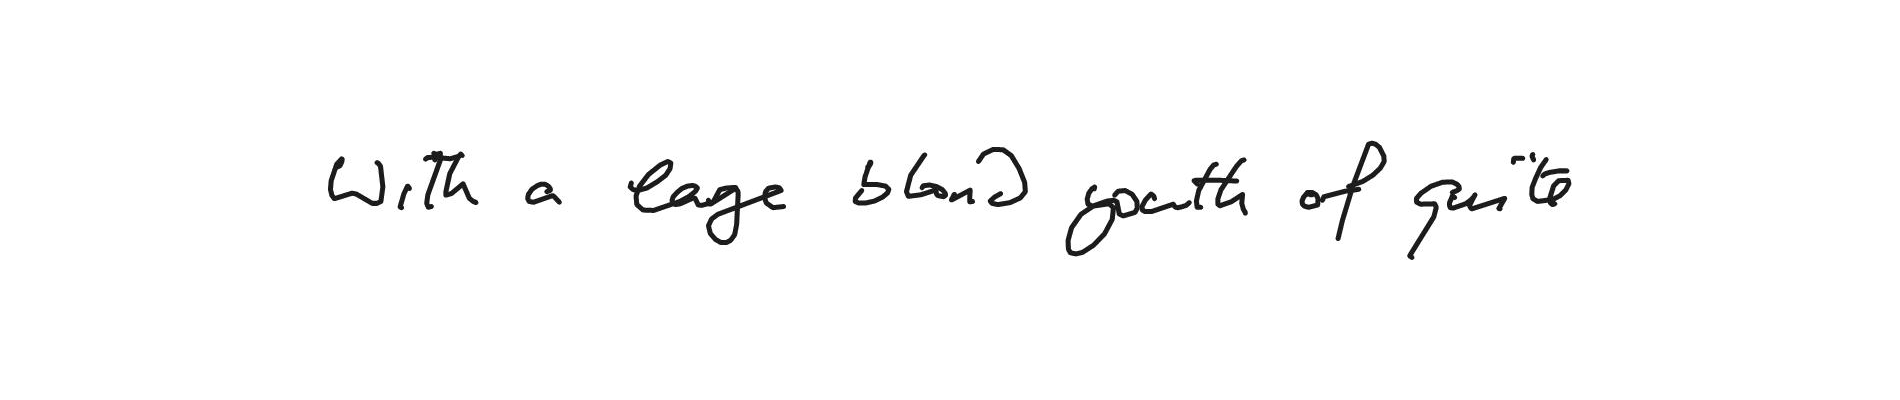 With a large blond youth of quite